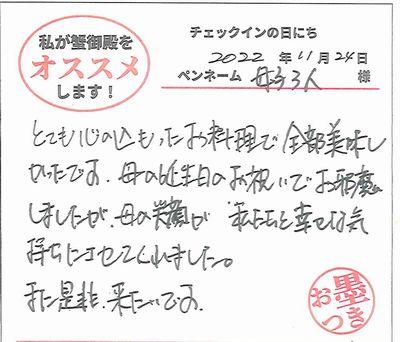 私が蟹御殿を
オススメ
します!
チェックインの日にち
2022 年 11 月 24 日
ペンネーム 母子3人 様
とても心の込もったお料理で全部美味し
かったです。母の誕生日のお祝いでお邪魔
しましたが、母の笑顔が私たちを幸せな気
持ちにさせてくれました。
また是非、来たいです。
お墨
つき